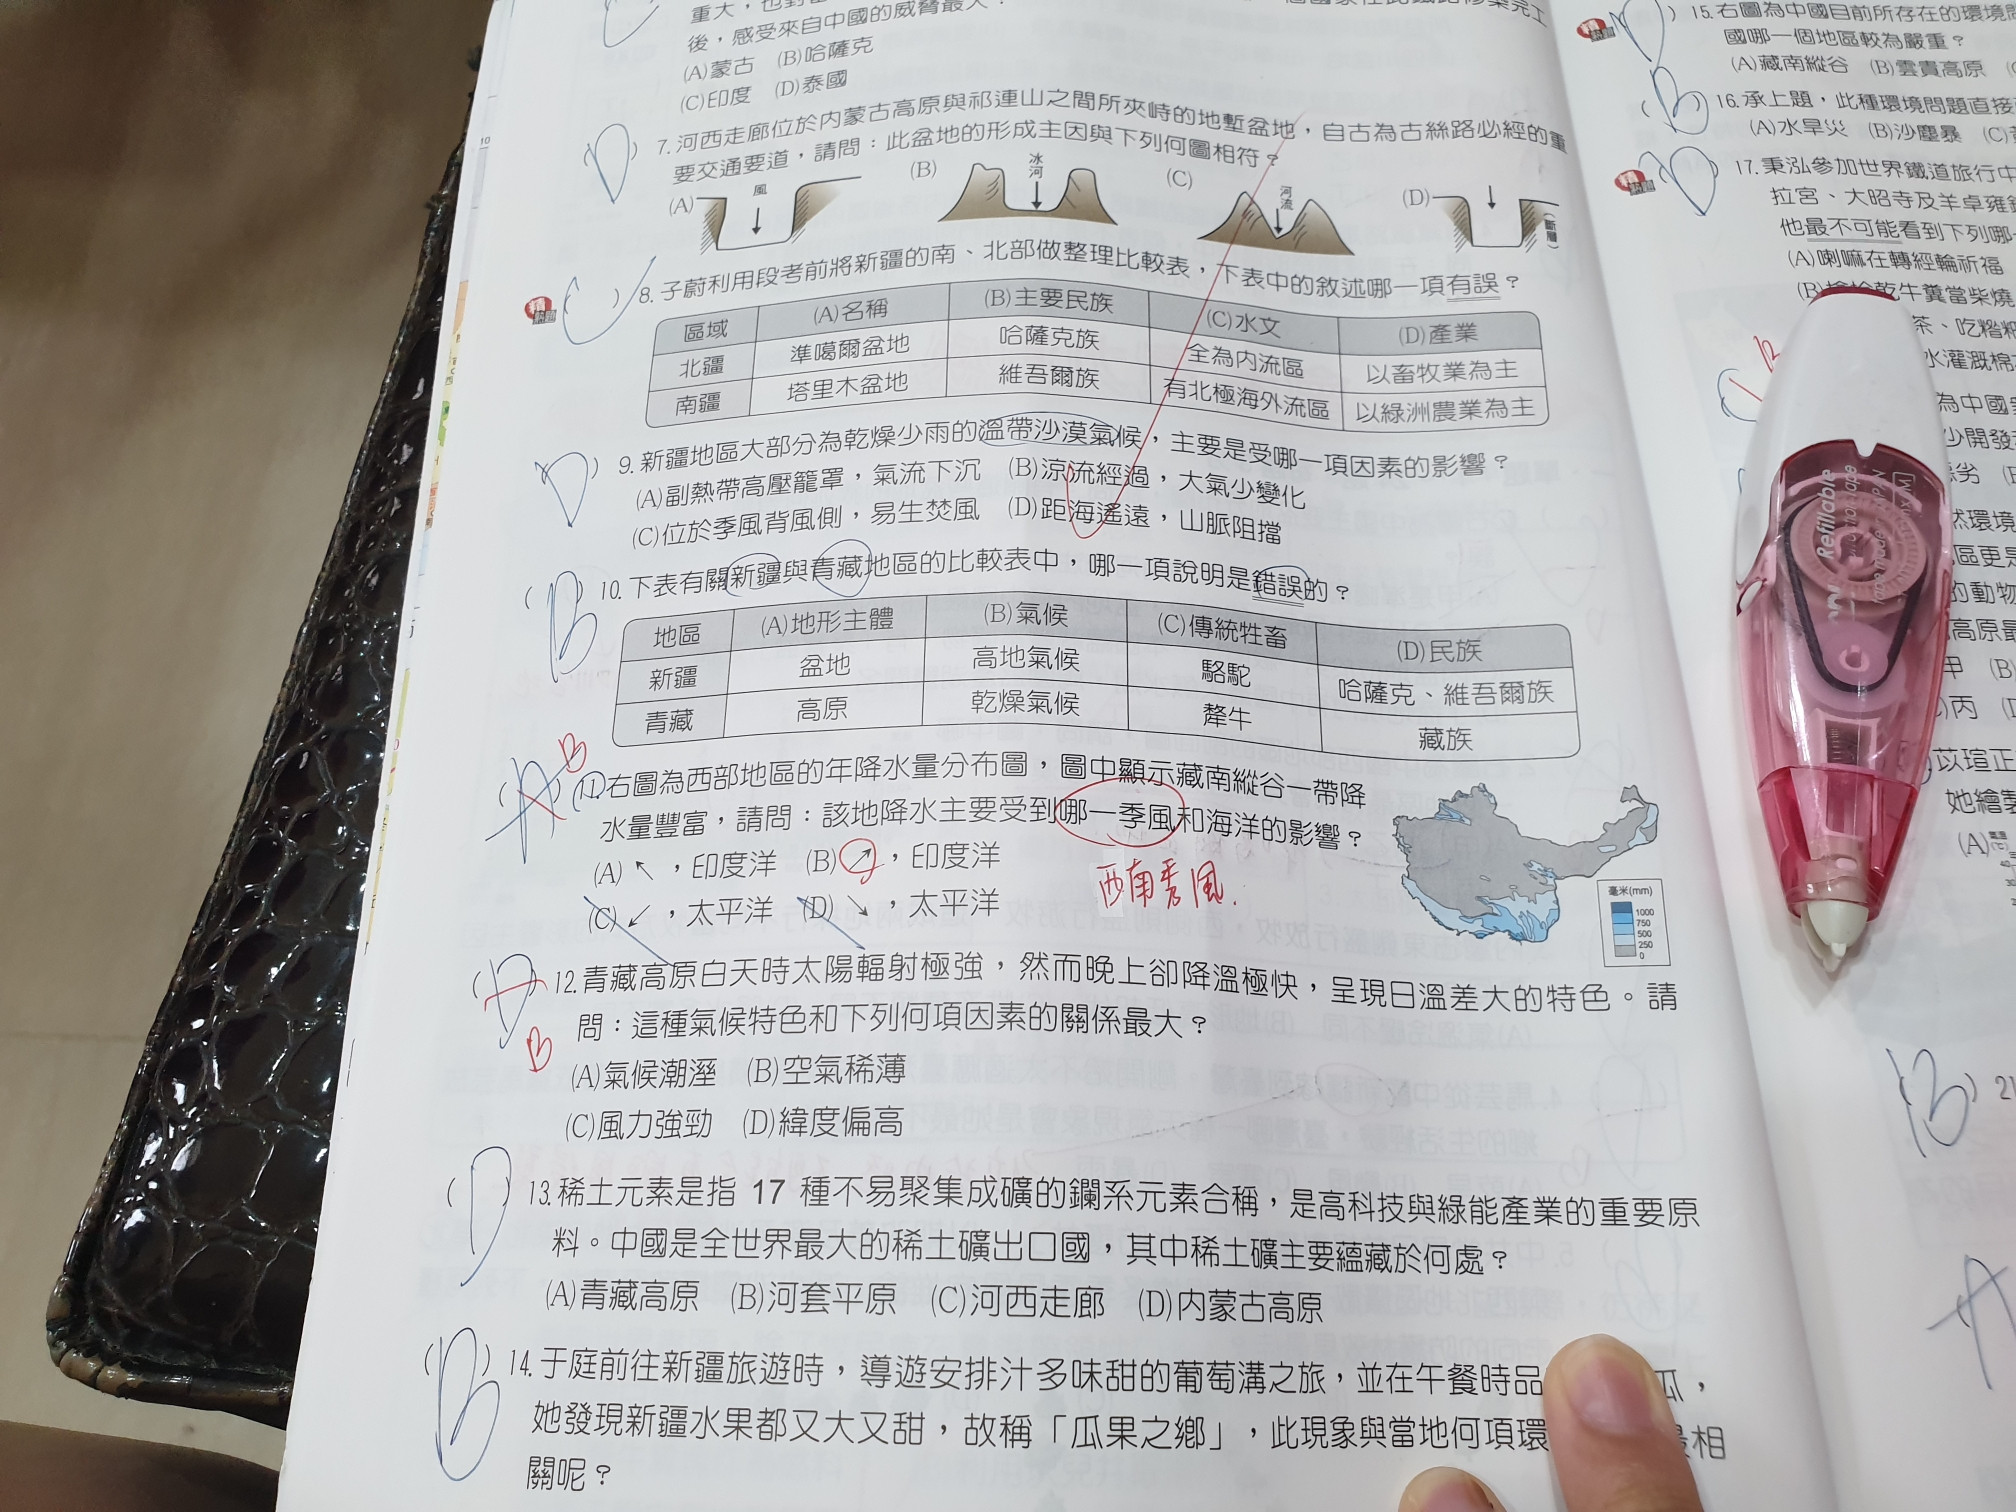 後，感受來自中國的威脅最大？
(A)蒙古 (B)哈薩克
(C)印度 (D)泰國
D
7.河西走廊位於內蒙古高原與祁連山之間所夾峙的地塹盆地，自古為古絲路必經的重
要交通要道，請問：此盆地的形成主因與下列何圖相符？
(A) 風 (B) 冰河 (C) 河流 (D) (斷層)
C
8.子蔚利用段考前將新疆的南、北部做整理比較表，下表中的敘述哪一項有誤？
區域 (A)名稱 (B)主要民族 (C)水文 (D)產業
北疆 準噶爾盆地 哈薩克族 全為內流區 以畜牧業為主
南疆 塔里木盆地 維吾爾族 有北極海外流區 以綠洲農業為主
D
9.新疆地區大部分為乾燥少雨的溫帶沙漠氣候，主要是受哪一項因素的影響？
(A)副熱帶高壓籠罩，氣流下沉 (B)涼流經過，大氣少變化
(C)位於季風背風側，易生焚風 (D)距海遙遠，山脈阻擋
B
10.下表有關新疆與青藏地區的比較表中，哪一項說明是錯誤的？
地區 (A)地形主體 (B)氣候 (C)傳統牲畜 (D)民族
新疆 盆地 高地氣候 駱駝 哈薩克、維吾爾族
青藏 高原 乾燥氣候 犛牛 藏族
A B
11.右圖為西部地區的年降水量分布圖，圖中顯示藏南縱谷一帶降
水量豐富，請問：該地降水主要受到哪一季風和海洋的影響？
(A)↖，印度洋 (B)↗，印度洋
(C)↙，太平洋 (D)↘，太平洋
西南季風.
毫米(mm)
1000
750
500
250
0
B
12.青藏高原白天時太陽輻射極強，然而晚上卻降溫極快，呈現日溫差大的特色。請
問：這種氣候特色和下列何項因素的關係最大？
(A)氣候潮溼 (B)空氣稀薄
(C)風力強勁 (D)緯度偏高
D
13.稀土元素是指 17 種不易聚集成礦的鑭系元素合稱，是高科技與綠能產業的重要原
料。中國是全世界最大的稀土礦出口國，其中稀土礦主要蘊藏於何處？
(A)青藏高原 (B)河套平原 (C)河西走廊 (D)內蒙古高原
B
14.于庭前往新疆旅遊時，導遊安排汁多味甜的葡萄溝之旅，並在午餐時品 瓜，
她發現新疆水果都又大又甜，故稱「瓜果之鄉」，此現象與當地何項環 最相
關呢？
15.右圖為中國目前所存在的環境
國哪一個地區較為嚴重？
(A)藏南縱谷 (B)雲貴高原
B
16.承上題，此種環境問題直接
(A)水旱災 (B)沙塵暴
D
17.秉泓參加世界鐵道旅行中
拉宮、大昭寺及羊卓雍
他最不可能看到下列哪
(A)喇嘛在轉經輪祈福
乾牛糞當柴燒
茶、吃糌粑
水灌溉棉
為中國
少開發
惡劣
然環境
區更是
的動物
高原最
甲 (B)
丙
苡瑄正
她繪製
(A)
B
21
A
Refillable